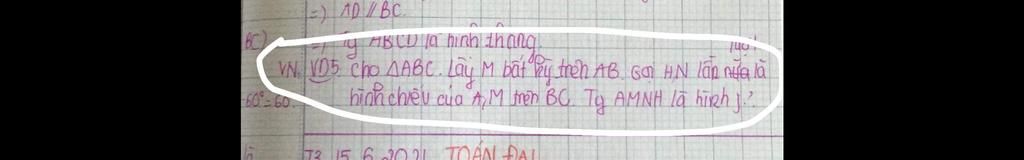 =) AD // BC.
BC)
=) Tg ABCD là hình thang.
VN. VD5. Cho ΔABC. Lấy M bất kỳ trên AB. Gọi H,N lần nữa là
-60°=60.
hình chiếu của A,M trên BC. Tg AMNH là hình j?
T3 15.6.2021 TOÁN ĐẠI